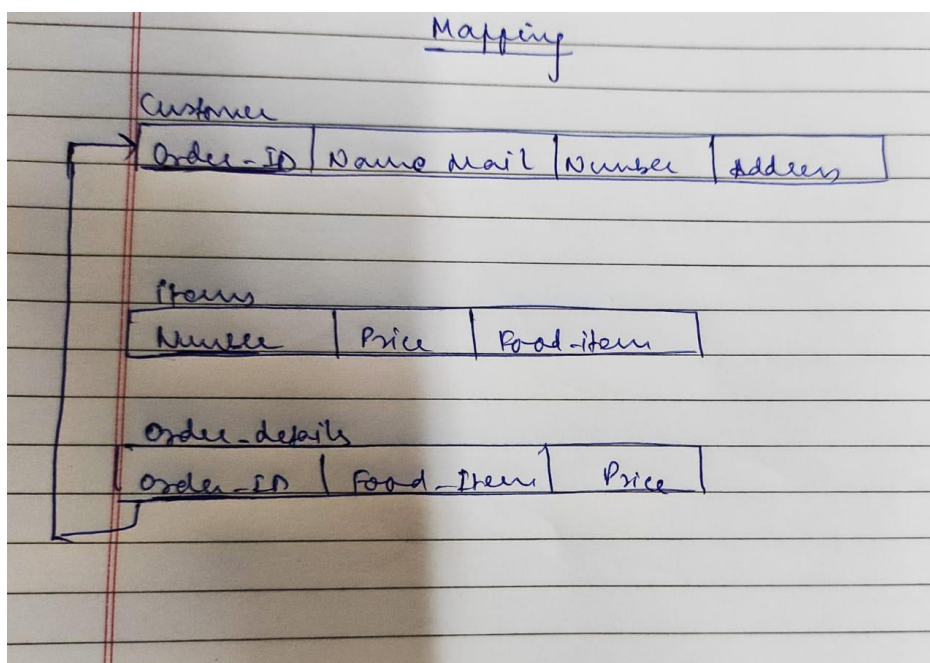 Mapping
Customer
Order-ID Name Mail Number Address
items
Number Price Food-item
Order-details
Order-ID Food-Item Price